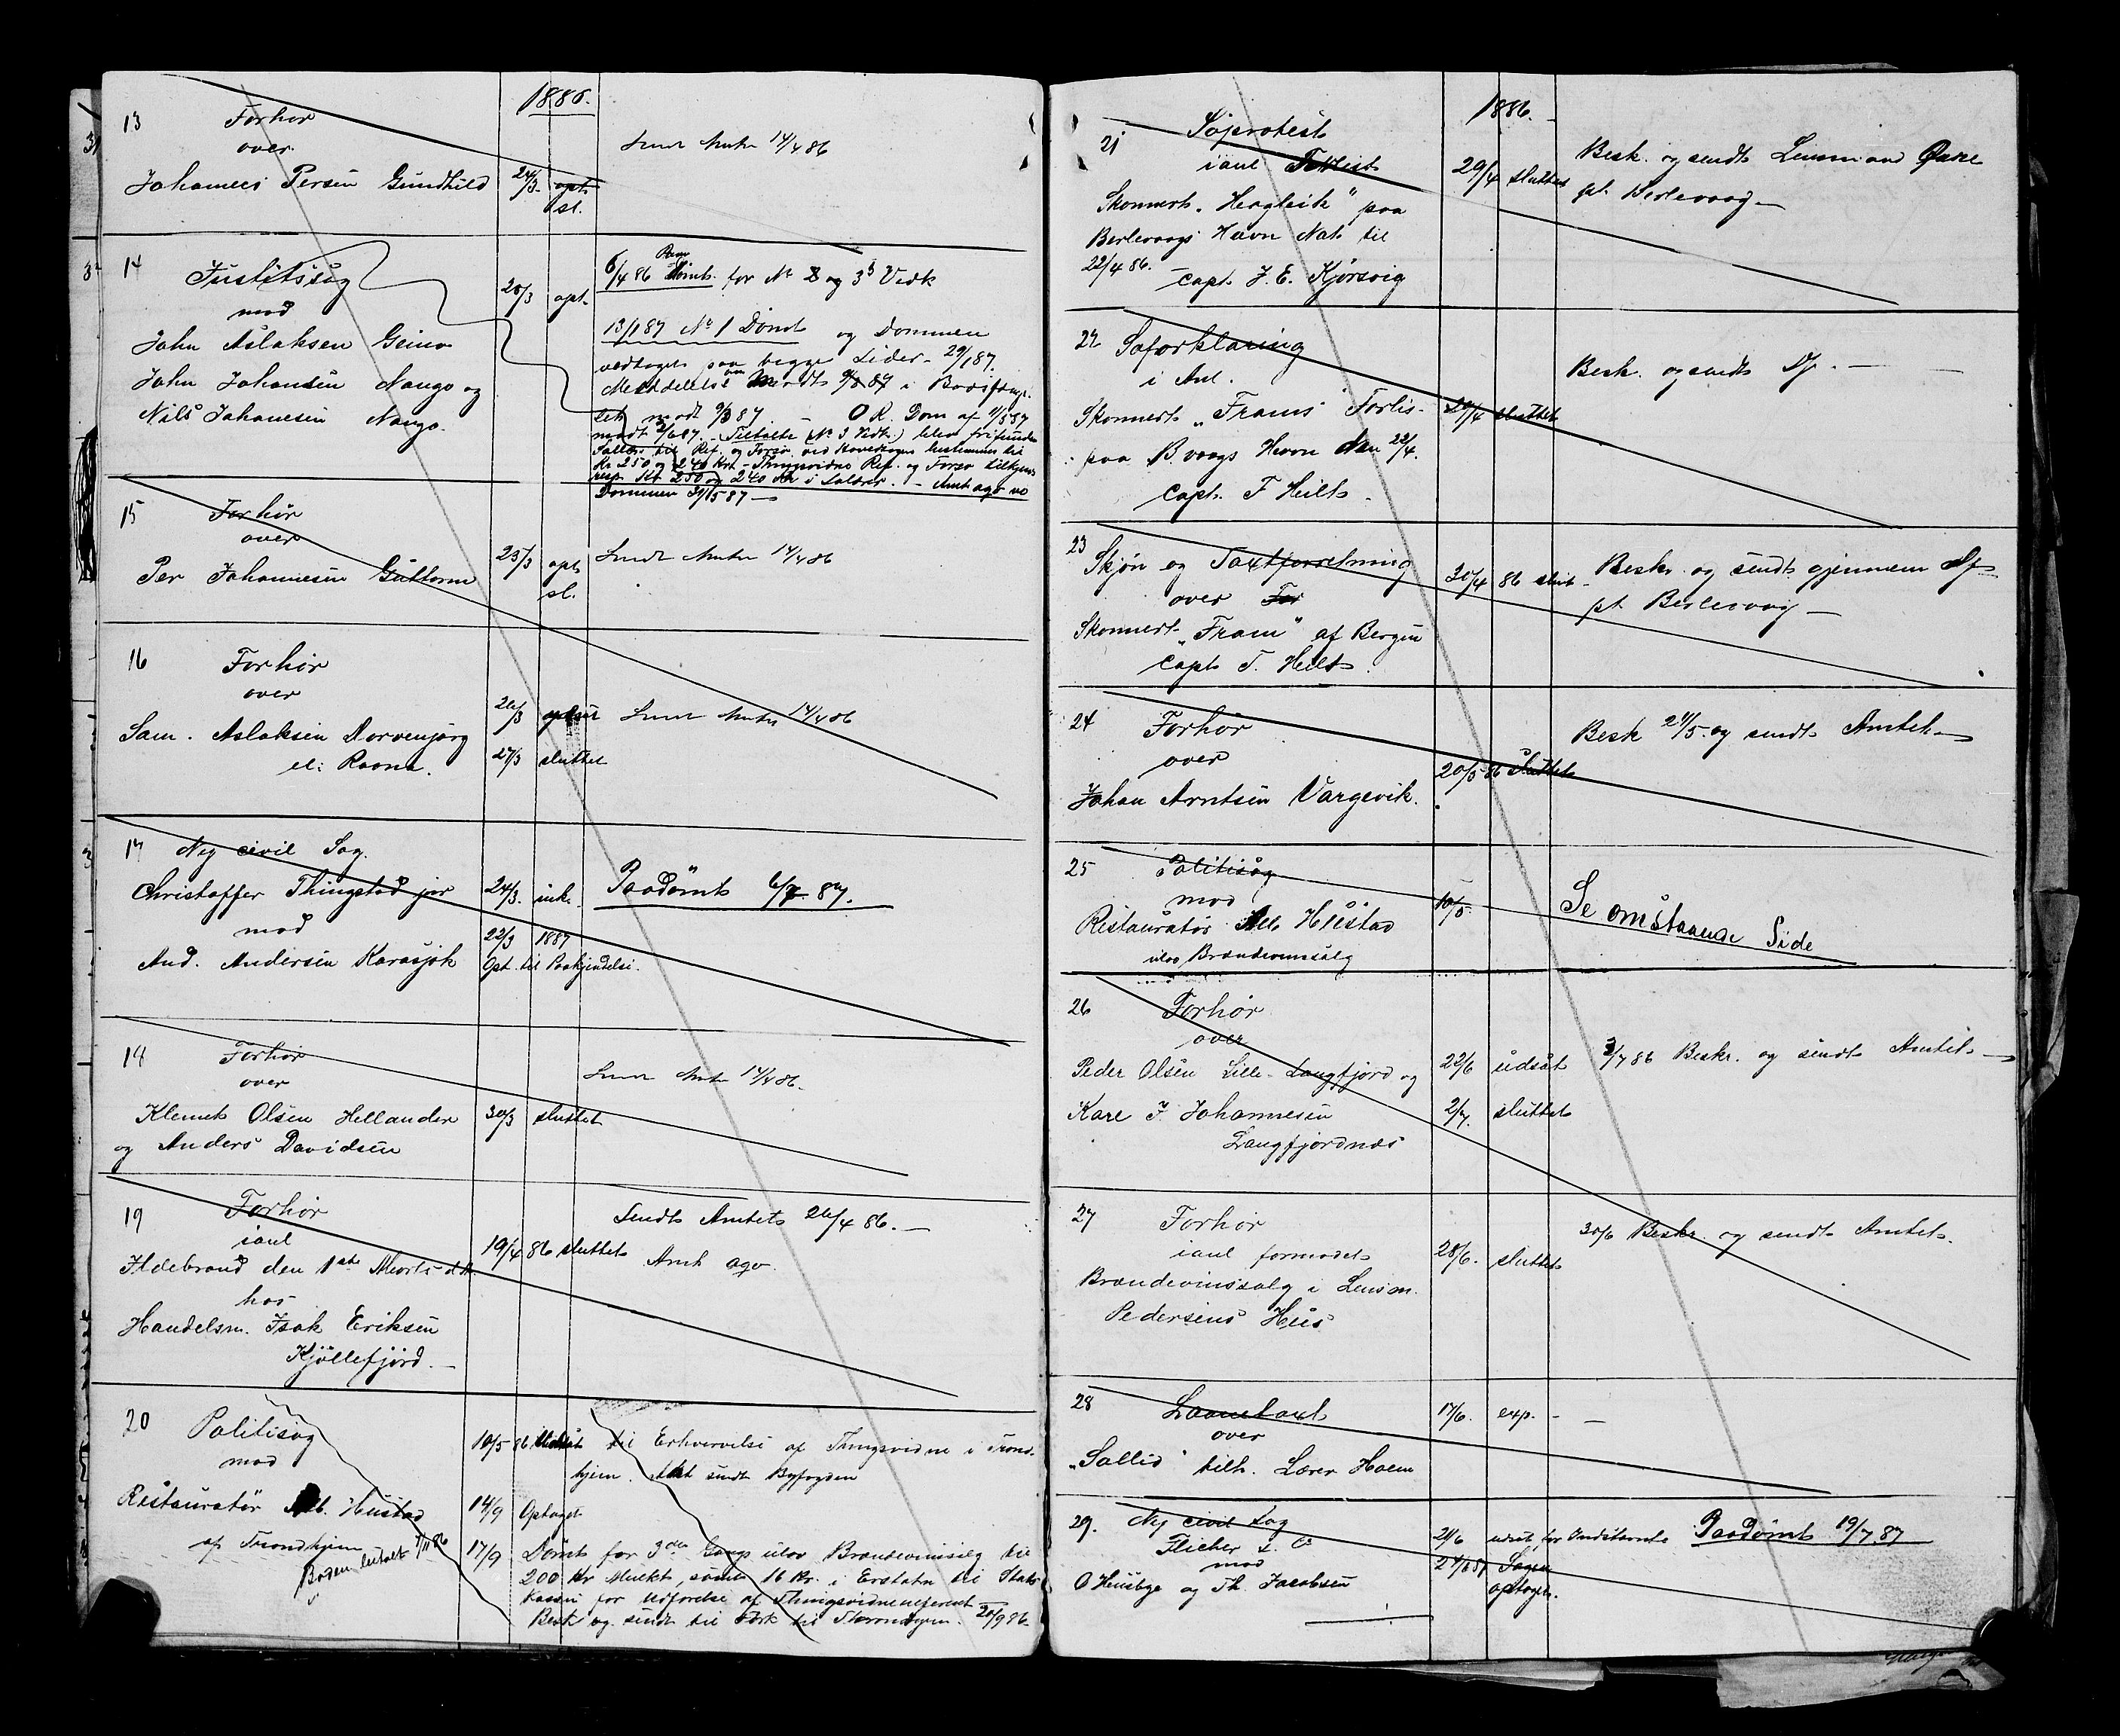 1886.
13 Forhör
over
Johannes Persen Gundhild 24/3 opt. sl.
Sendt Amtet 14/4 86
14 Justitssag
mod
John Aslaksen Geino
John Johansen Nango og
Nils Johanesen Nango.
20/3 opt.
6/4 86 Dömt. for No 2 og 3s Vedk
13/1 87 No 1 Dömt og Dommen
vedtaget paa begge Sider - 29/1 87.
modt 9/3 87 - O.R. Dom af
Tiltalte (No 3 Vedk.) blev frifunden
Kr 250 og 240 Kr - Ref. og Forsv
resp. Kr 250 og 240 Kr i Salær. - Amt agv
Dommen 31/5 87 -
15 Forhör
over
Per Johannesen Guttorm
25/3 opt sl.
Sendt Amtet 14/4 86
16 Forhör
over
Sam. Aslaksen Dorvenjarg
el: Raona.
26/3
27/3 sluttet
Sendt Amtet 14/4 86
17 Ny civil Sag.
Christoffer Thingstad jor
mod
And. Andersen Karasjok
24/3. ink.
22/3 1887
Opt. til Paakjendelse.
Paadömt 6/7 87.
18 Forhör
over
Klemet Olsen Hellander
og Anders Davidsen
30/3 sluttet
Sendt Amtet 14/4 86.
19 Forhör
i anl
Ildebrand den 1ste Marts d.A.
hos
Handelsm. Isak Eriksen
Kjöllefjord. -
19/4 86 sluttet
Sendt Amtet 26/4 86. -
Amt agv.
20 Politisag
mod
Restauratör Alb. Hustad
af Trondhjem
Boden betalt 1/11 86
10/5 86 Udsat til Erhvervelse af Thingsvidne i Trond-
hjem. Akt sendt Byfogden
14/9 Optaget
17/9 Dömt for 3die Gang ulov Brændevinssalg til
200 Kr Mulkt, samt 16 Kr. i Erstatn til Stats
Kassen for Udförelse af Thingsvidnereferent
Besk og sendt til Fork til Throndhjem. 20/9 86
1886. -
21 Söprotest
i anl Forlist
Skonnert "Hengleik" paa
Berlevaags Havn Nat til
22/4 86.
Capt. J. E. Kjörsvig
29/4 sluttet
Besk. og sendt Lensmand Qvæe
pt. Berlevaag -
22 Söforklaring
i Anl.
Skonnert "Frams" Forlis
paa B.vaags Havn den 22/4.
Capt. F Heilt.
29/4 sluttet
Besk. og sendt Df. -
23 Skjön og Taxtforretning
over For
Skonnert "Fram" af Bergen
Capt. T. Heilt.
30/4 86 slut -
Beskr. og sendt gjennem Df
pt Berlevaag -
24 Forhör
over
Johan Arntsen Vargevik.
20/5 86 sluttet
Besk 21/5 og sendt Amtet. -
25 Politisag
mod
Restauratör Alb Hustad
ulov Brændevinssalg
10/5.
Se omstaaende Side
26 Forhör
over
Peder Olsen Lille-Langfjord og
Kare J. Johannesen
Langfjordnæs
22/6 udsat
2/7. sluttet
3/7 86 Beskr. og sendt Amtet. -
27 Forhör
i anl formodet
Brændevinssalg i Lensm.
Pedersens Hus
28/6. sluttet
30/6 Beskr. og sendt Amtet.
28 Laanetaxt
over
"Sollid" tilh. Lærer Holm
17/6. exp. - -
29. Ny civil Sag
Flieher & Co
mod
O Husbye og Th. Jacobsen
21/6 udsat for Indstævnte
Sagen
optaget.
Paadömt 19/7 87